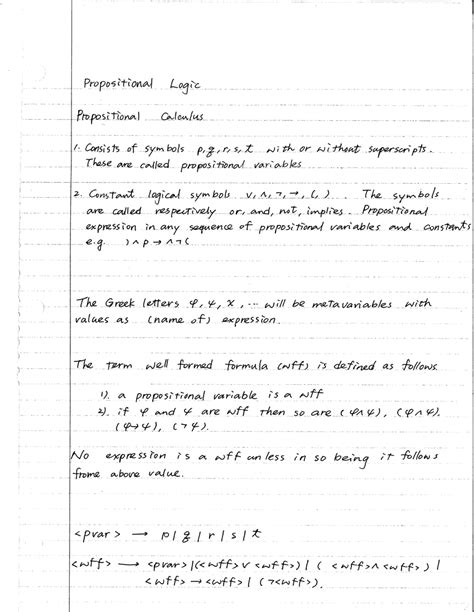 Propositional Logic
Propositional Calculus
1. Consists of symbols p, q, r, s, t with or without superscripts.
These are called propositional variables
2. Constant logical symbols v, ∧, ¬, →, (, ) . . The symbols
are called respectively or, and, not, implies. Propositional
expression in any sequence of propositional variables and constants
e.g. ) ∧ p → ∧ ¬ (
The Greek letters φ, ψ, χ, ... will be metavariables with
values as (name of) expression.
The term well formed formula (wff) is defined as follows.
1). a propositional variable is a wff
2). if φ and ψ are wff then so are (φ∧ψ), (φ∧ψ).
(φ→ψ), (¬ψ).
No expression is a wff unless in so being it follows
frome above value.
<pvar> → p | q | r | s | t
<wff> → <pvar> | (<wff> v <wff>) | ( <wff> ∧ <wff> ) |
<wff> → <wff> | (¬<wff>).